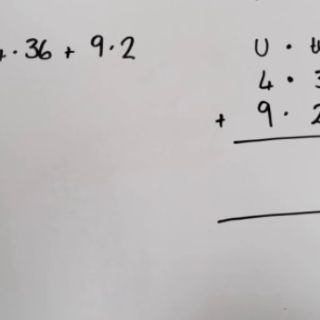 4·36 + 9·2
U · t
4 · 3
+ 9 · 2